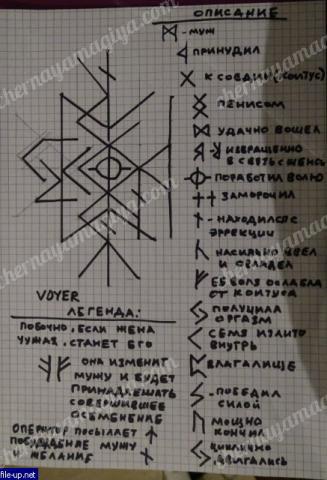 ОПИСАНИЕ
- МУЖ
ПРИНУДИЛ
К СОЕДИН.(КОИТУС)
ПЕНИСОМ
УДАЧНО ВОШЕЛ
ИЗВРАЩЕННО
В СВЯЗЬ С ЖЕНОЙ
ПОРАБОТИЛ ВОЛЮ
ЗАМОРОЧИЛ
- НАХОДИЛСЯ С
ЭРРЕКЦИИ
НАСИЛЬНО
И ОВЛАДЕЛ
ЕЕ ВОЛЯ ОСЛАБЛА
ОТ КОИТУСА
ПОЛУЧИЛА
ОРГАЗМ
СЕМЯ ИЗЛИТО
ВНУТРЬ
ВЛАГАЛИЩЕ
- ПОБЕДИЛ
СИЛОЙ
МОЩНО
КОНЧИЛ
ЦИКЛИЧНО
ДВИГАЛИСЬ
VOYER
ЛЕГЕНДА:
ПОБОЧНО, ЕСЛИ ЖЕНА
ЧУЖАЯ, СТАНЕТ ЕГО
ОНА ИЗМЕНИТ
МУЖУ И БУДЕТ
ПРИНАДЛЕЖАТЬ
СОВЕРШИВШЕЕ
ОСЕМЕНЕНИЕ
ОПЕРАТОР ПОСЫЛАЕТ
МУЖУ
ЖЕЛАНИЕ
chernayamagiya.com
chernayamagiya.com
chernayamagiya.com
file-up.net